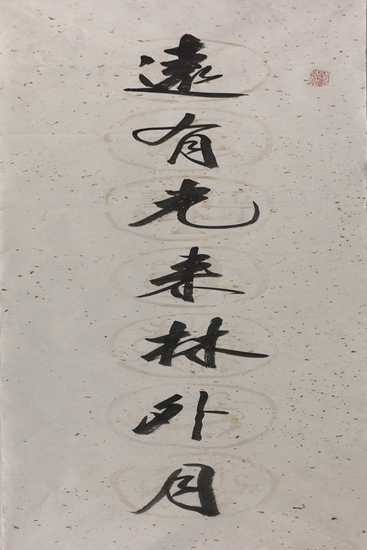 遠有光來林外月